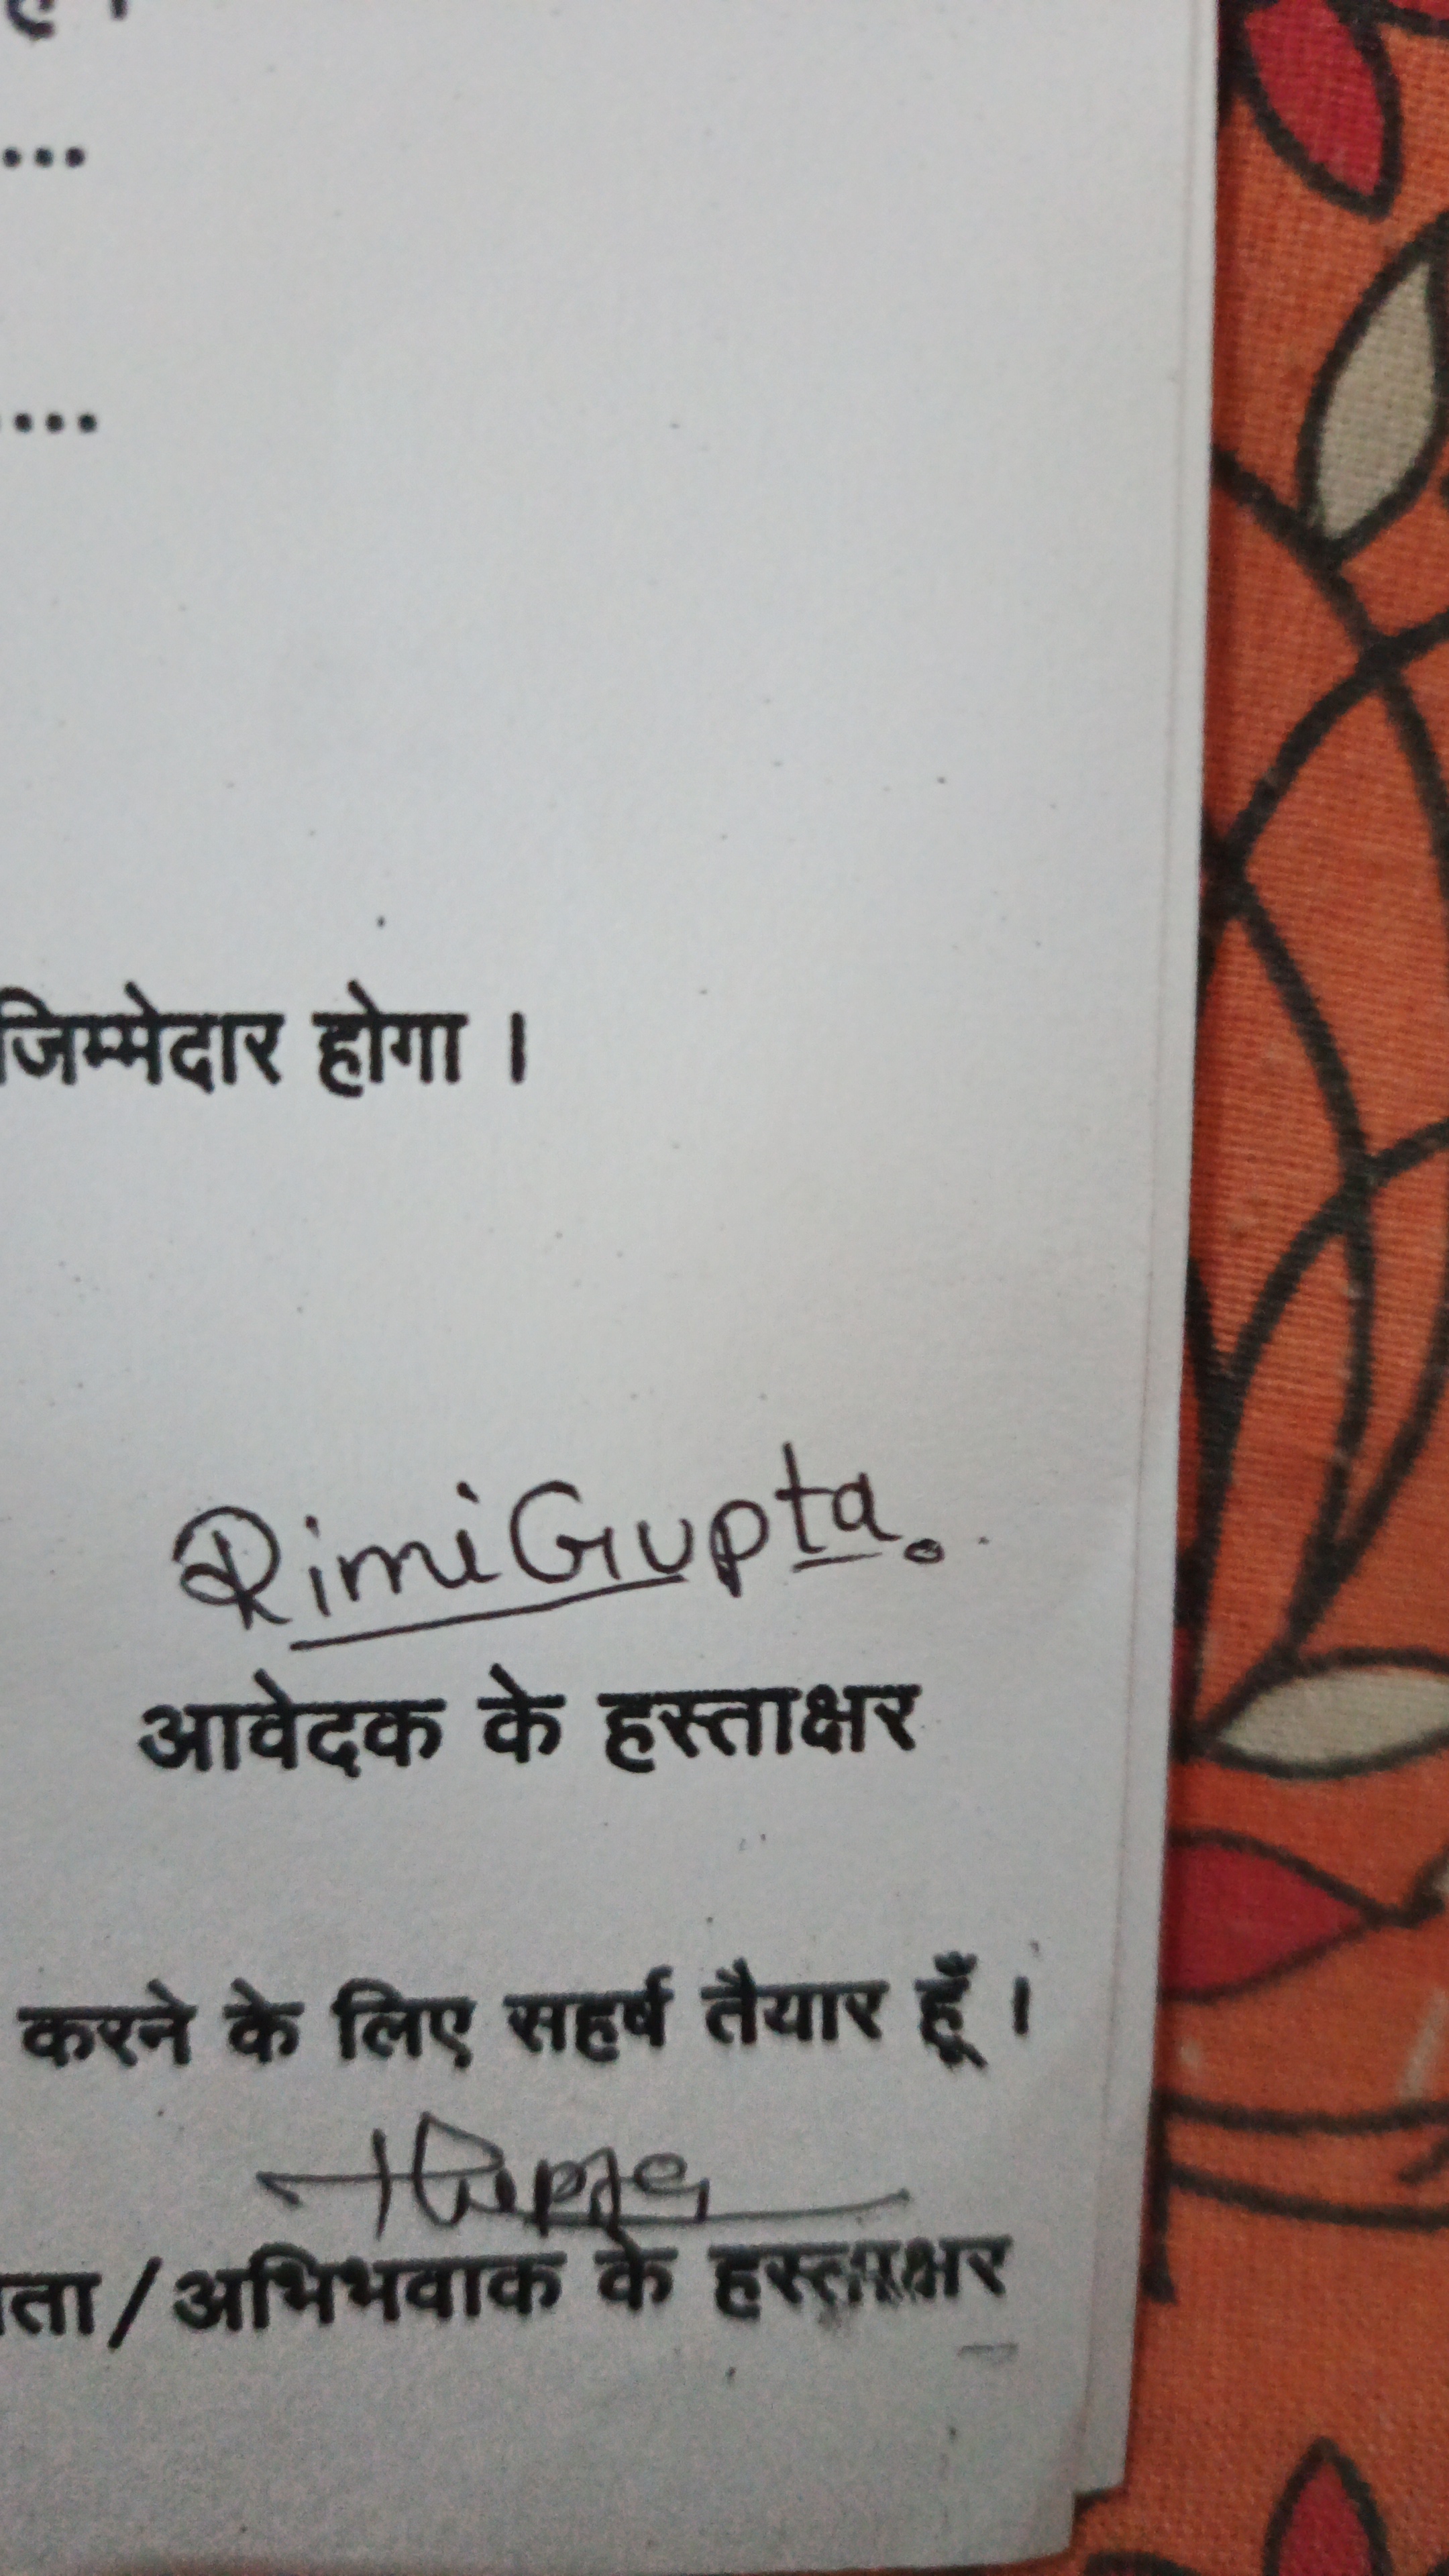 ...
...
जिम्मेदार होगा ।
Rimi Gupta.
आवेदक के हस्ताक्षर
करने के लिए सहर्ष तैयार हूँ ।
ता/अभिभवाक के हस्ताक्षर